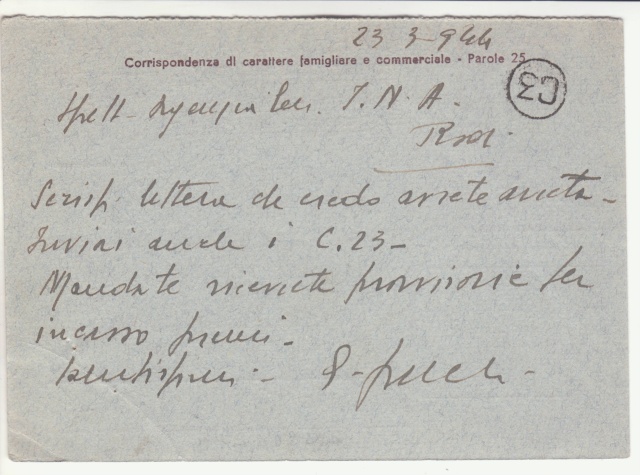 23-3-944
Corrispondenza di carattere famigliare e commerciale - Parole 25
C3
Spett. Agenzia Gen. I.N.A.
Rodi.
Scrissi lettera che credo avrete avuta -
Inviai anche i C.23 -
Mandate ricevute provvisorie per
incasso premi -